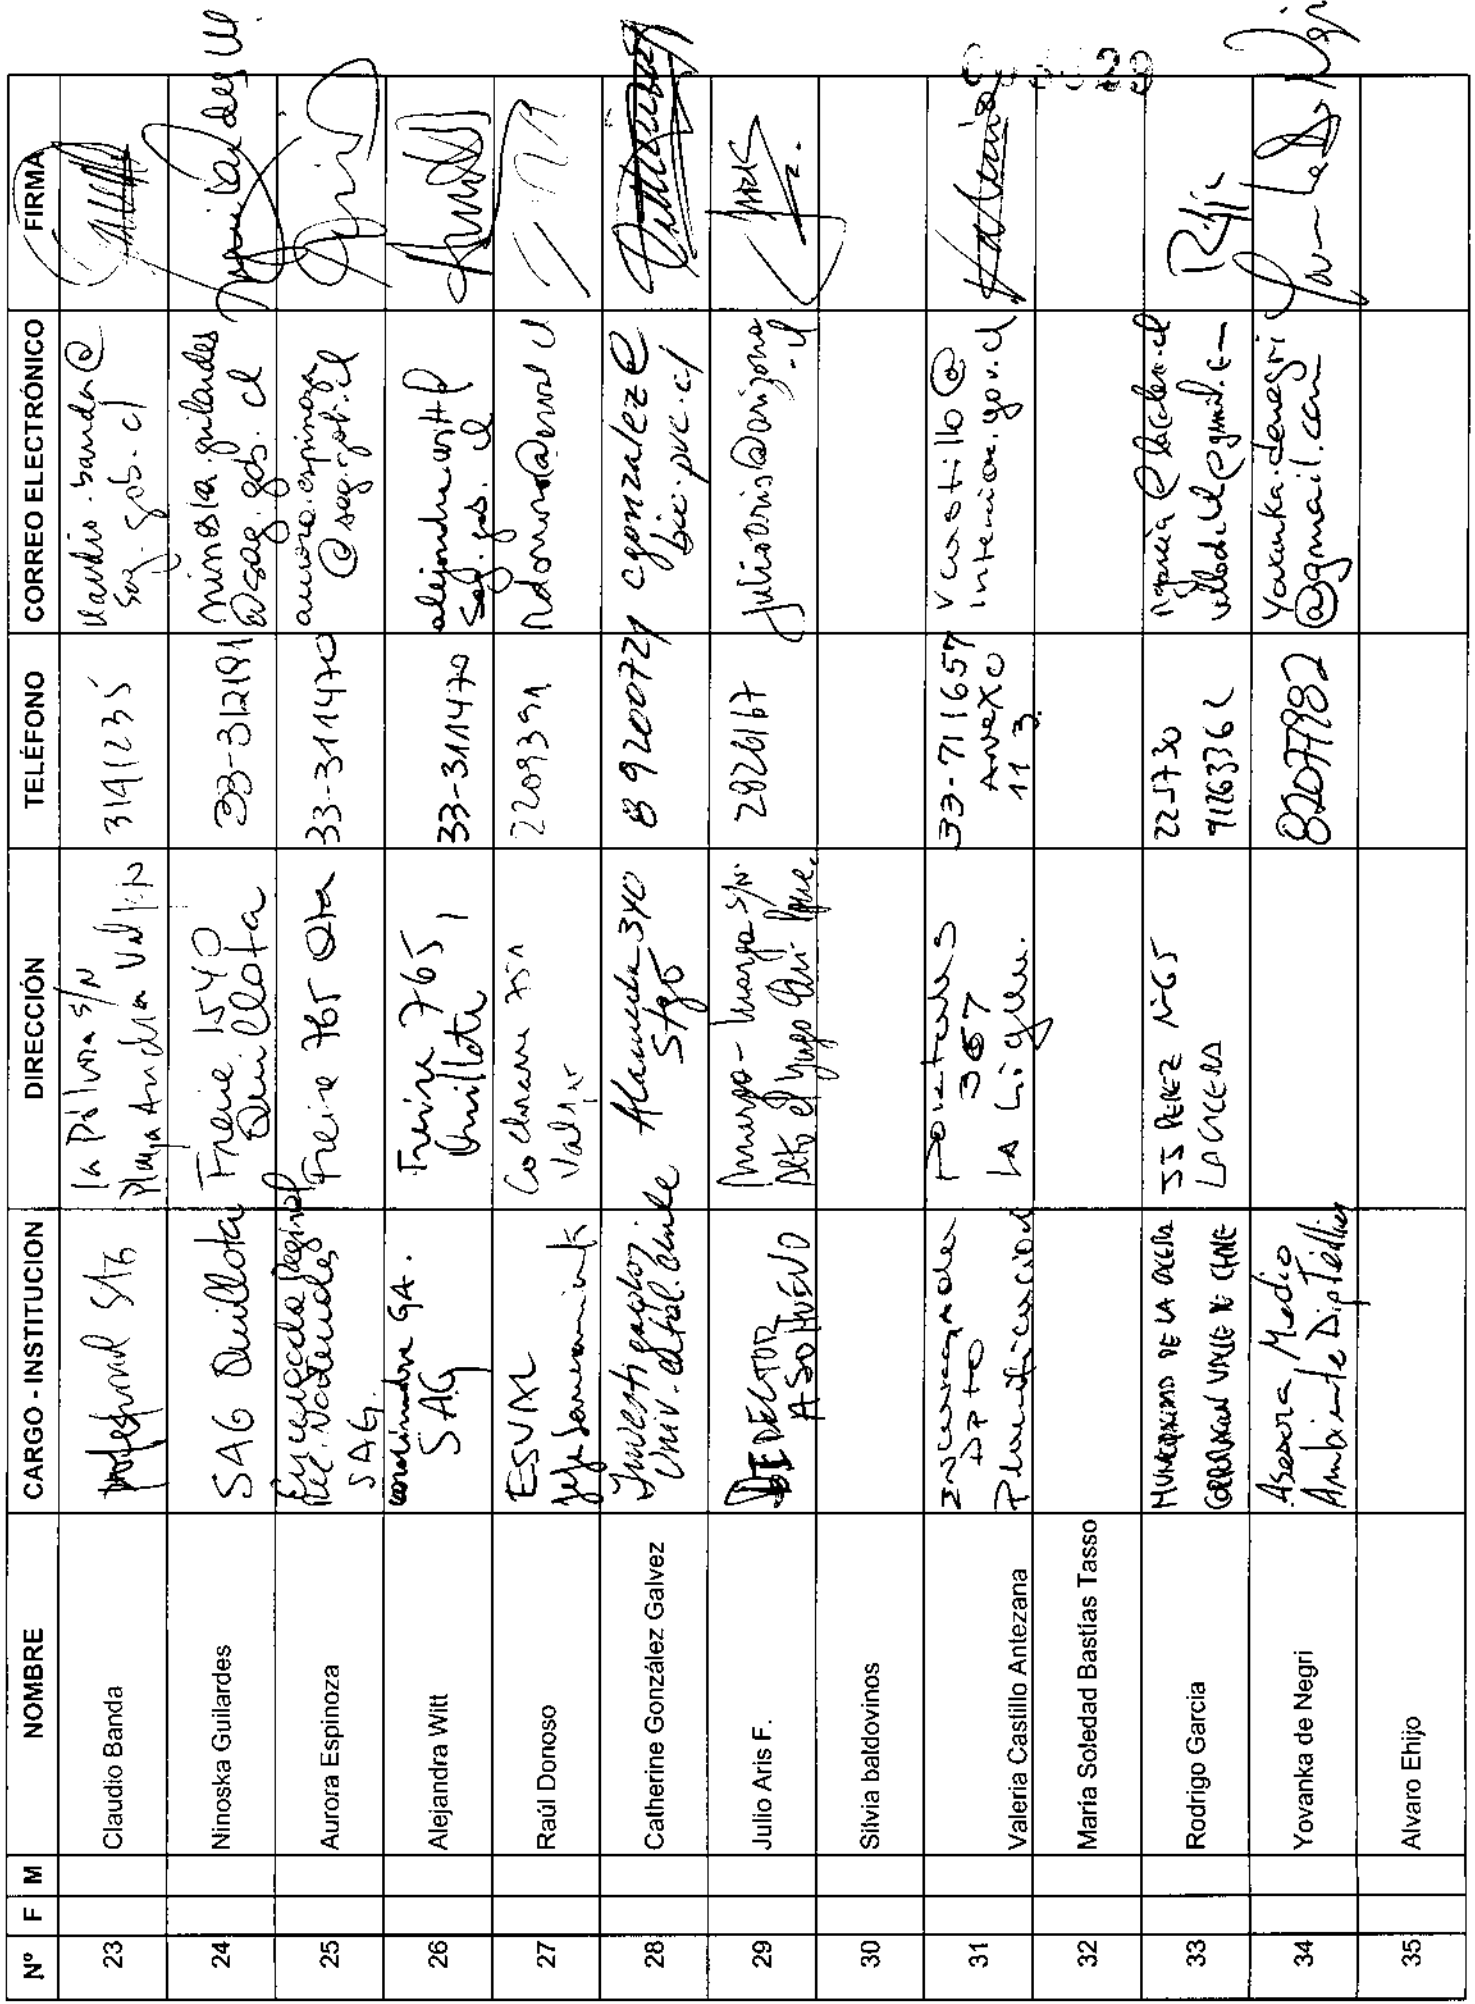 Nº F M NOMBRE CARGO - INSTITUCION DIRECCIÓN TELÉFONO CORREO ELECTRÓNICO FIRMA
23 Claudio Banda
profesional SAG
La Palma S/N
Playa Ancha Valpo
3191235
claudio.banda@
sag.gob.cl
24 Ninoska Guilardes
SAG Quillota
Freire 1540
Quillota
33-312191
ninoska.guilardes
@sag.gob.cl
25 Aurora Espinoza
Encargada Regional
Rec. Naturales
SAG.
Freire 765 Qta
33-311470
aurora.espinoza
@sag.gob.cl
26 Alejandra Witt
coordinadora GA.
SAG
Freire 765,
Quillota
33-311470
alejandra.witt@
sag.gob.cl
27 Raúl Donoso
ESVAL
Jefe Saneamiento
Cochrane 751
Valpo
2209391
rdonoso@esval.cl
28 Catherine González Galvez
Investigador
Univ. Catol. Chile
Alameda 340
Stgo
8 9200721
cgonzalez@
bio.puc.cl
29 Julio Aris F.
DIRECTOR
ASOHUEVO
S/N.
Alto el Yugo
2926167
julioaris@arizona
.cl
30 Silvia baldovinos
31 Valeria Castillo Antezana
Encargada
DPTO
Planificación
Portales
367
La Ligua.
33-711657
Anexo
113.
vcastillo@
interior.gov.cl
32 María Soledad Bastías Tasso
33 Rodrigo Garcia
MUNICIPALIDAD DE LA CALERA
CORPORACION VALLE DE CHILE
JJ PEREZ Nº65
LA CALERA
225730
91263362
rgarcia@lacalera.cl
34 Yovanka de Negri
Asesora Medio
Ambiente Dip Teillier
82077982
Yovanka.denegri
@gmail.com
35 Alvaro Ehijo